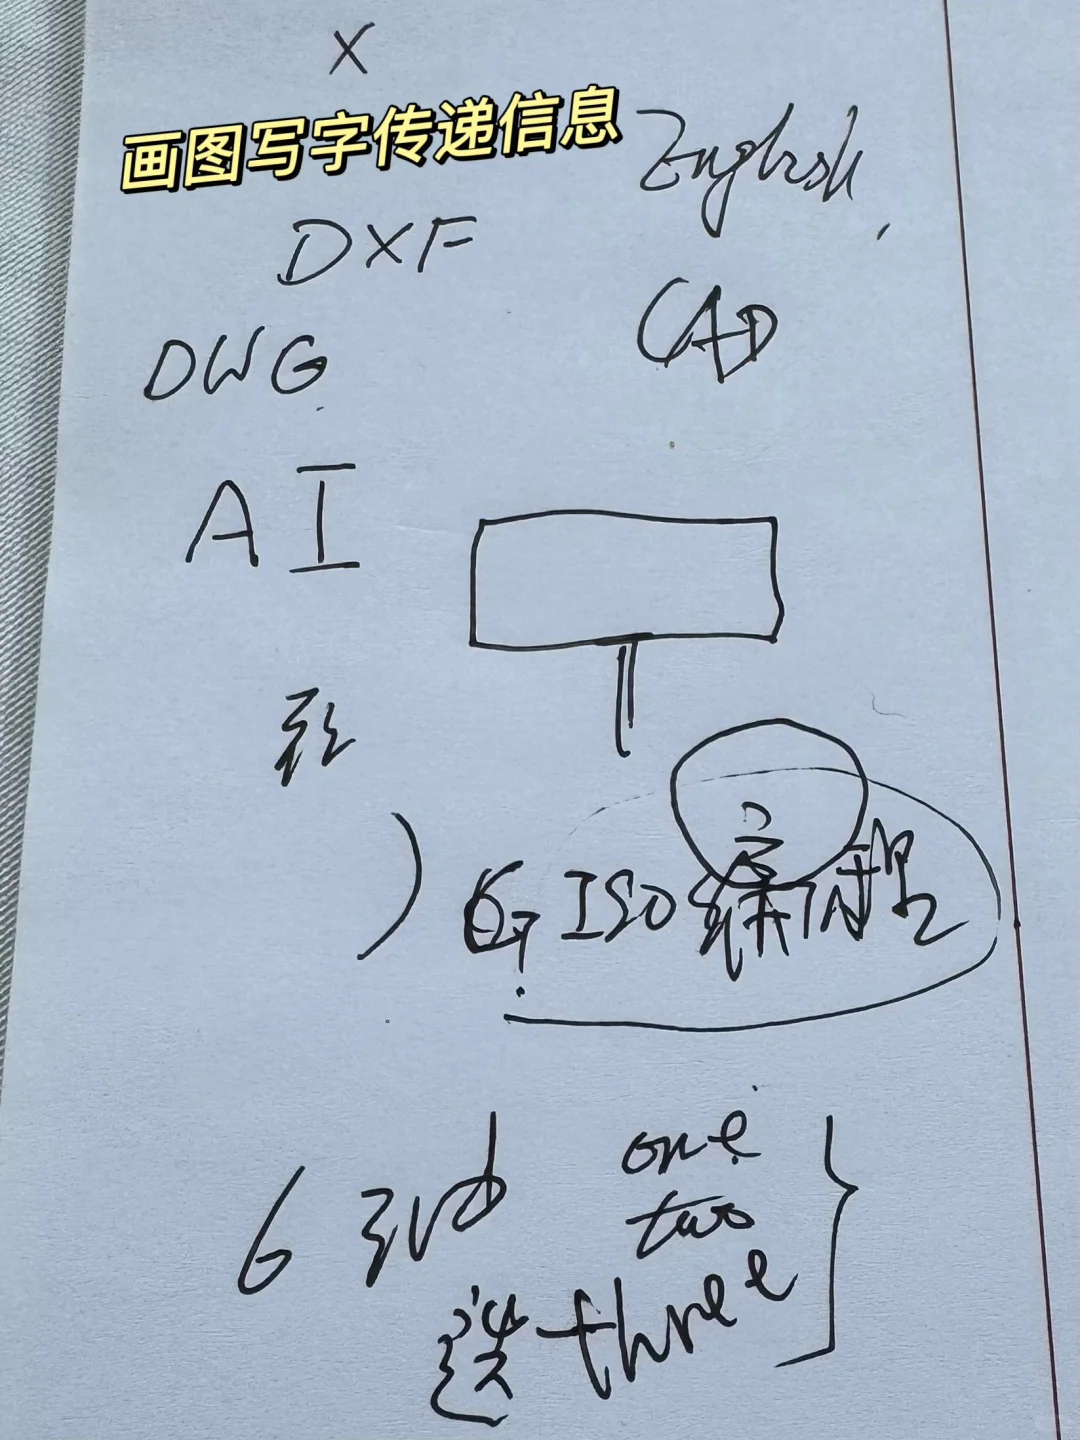 X
画图写字传递信息
English
DXF
CAD
DWG
AI
G ISO 编程
6 轴
one
two
选 three